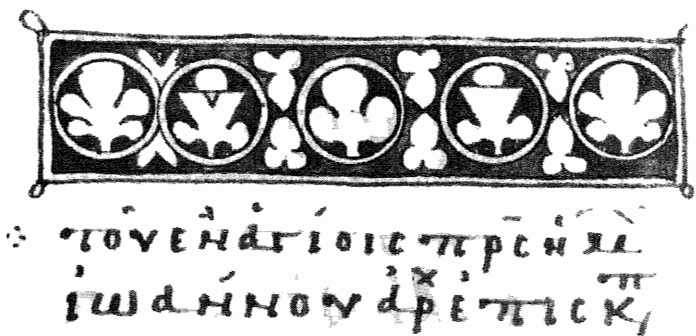 τοῦ ἐν ἁγίοις πρ̅ς ἡμῶ
ἰωάννου ἀρχἐπισκπ